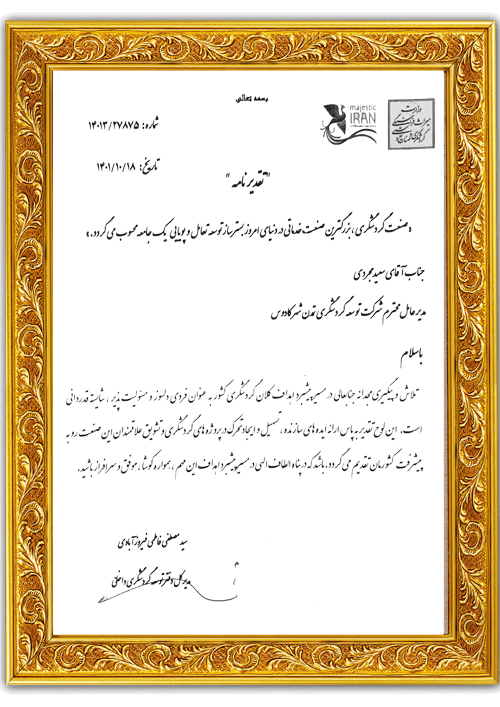 بسمه تعالی
majestic
IRAN
وزارت
میراث فرهنگی
گردشگری و صنایع دستی
شماره: ۱۴۰۱۳/۲۷۸۷۵
تاریخ: ۱۴۰۱/۱۰/۱۸
"تقدیرنامه"
«صنعت گردشگری، بزرگترین صنعت خدماتی در دنیای امروز بسترساز توسعه تعامل و پویایی یک جامعه محسوب می گردد.»
جناب آقای سعید مجردی
مدیرعامل محترم شرکت توسعه گردشگری تمدن شهر کادوس
باسلام
تلاش و پیگیری مجدانه جنابعالی در مسیر پیشبرد اهداف کلان گردشگری کشور به عنوان فردی دلسوز و مسئولیت پذیر، شایسته قدردانی
است. این لوح تقدیر به پاس ارائه ایده های سازنده، تسهیل و ایجاد تحرک در پروژه های گردشگری و تشویق علاقمندان این صنعت رو به
پیشرفت کشورمان تقدیم می گردد. باشد که در پناه الطاف الهی در مسیر پیشبرد اهداف این مهم، همواره کوشا، موفق و سرافراز باشید.
سید مصطفی فاطمی فیروزآبادی
مدیرکل دفتر توسعه گردشگری داخلی